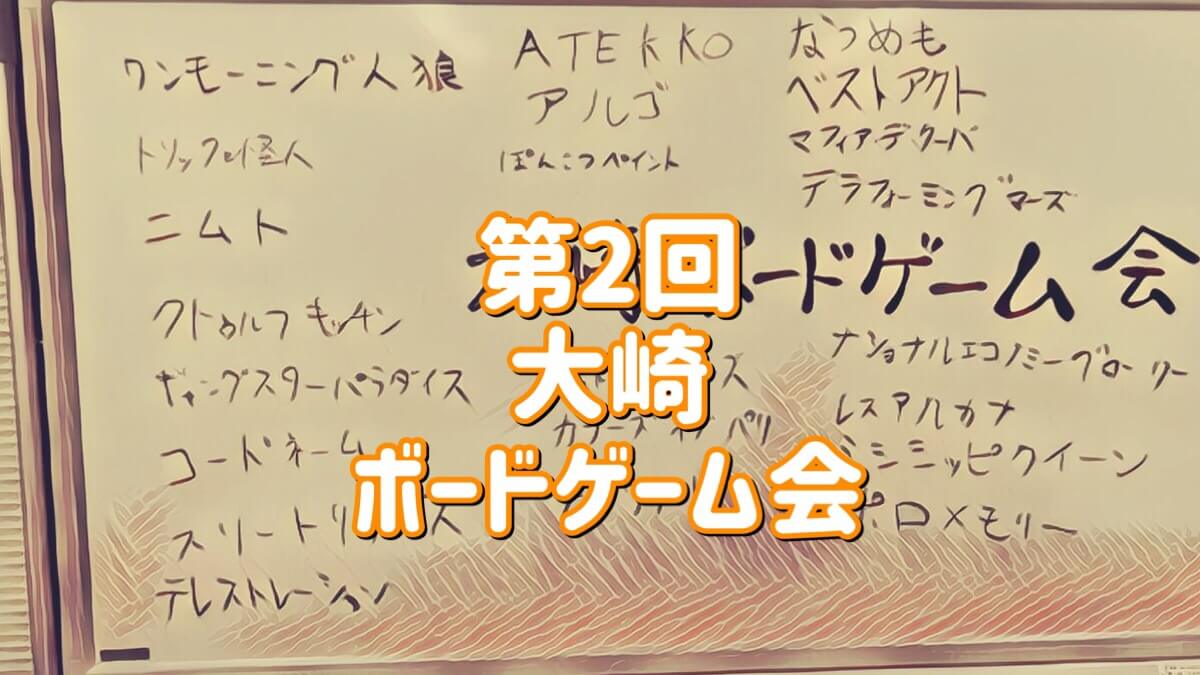 ワンモーニング人狼
トリックと怪人
ニムト
クトゥルフキッチン
ギャングスターパラダイス
コードネーム
テレストレーション
ATEKKO
アルゴ
ぽんこつペイント
第2回
大崎
ボードゲーム会
ボードゲーム会
カラーズオブパリ
なつめも
ベストアクト
マフィアデクーバ
テラフォーミングマーズ
ナショナルエコノミーグローリー
レスアルカナ
ミシシッピクイーン
ポロ×モリー